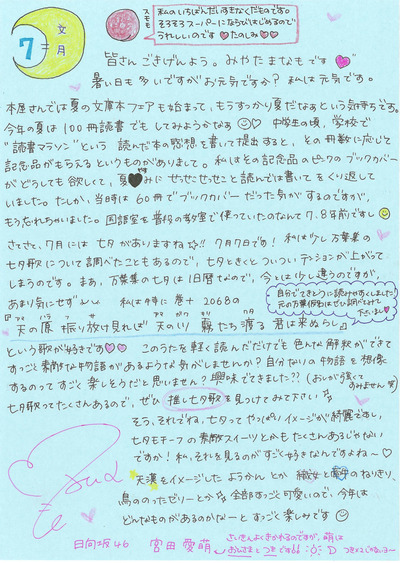 7=
文月
スモモ
私のいちばんだいすきなくだものです。
そろそろスーパーにならびはじめるので
うれしいのです♡たのしみ♡♡
皆さんごきげんよう。みやたまなもです♡
暑い日も多いですがお元気ですか?私は元気です。
本屋さんでは夏の文庫本フェアも始まって、もうすっかり夏だなぁという気持ちです。
今年の夏は100冊読書でもしてみようかなぁ☺♡ 中学生の頃、学校で
"読書マラソン"という 読んだ本の感想を書いて提出すると、その冊数に応じて
記念品がもらえるというものがありまして。私はその記念品のピンクのブックカバー
がどうしても欲しくて、夏休みにせっせせっせと読んでは書いてをくり返して
いました。たしか、当時は60冊でブックカバーだった気がするのですが、
もう忘れちゃいました。国語室を普段の教室で使っていたのなんて7、8年前ですし☺
さてさて、7月には七夕がありますね☆!! 7月7日です!私は少し万葉集の
七夕歌について調べたこともあるので、七夕ときくとついついテンションが上がって
しまうのです。まあ、万葉集の七夕は旧暦なので、今とは少し違うのですが、
あまり気にせず… 私は特に巻十 2068の
自分でてきとうに読み下しました
元の万葉仮名はぜひ調べてみて
下さい♡
『天の原 振り放け見れば 天の川 霧たち渡る 君は来ぬらし』
アマ ハラ フ サ ミ アマ ガハ キリ ワタ キミ キ
という歌が好きです♡♡ このうたを軽く読んだだけでも色んな解釈ができて
すっごく素敵な物語があるような気がしませんか?自分なりの物語を想像
するのってすっごく楽しそうだと思いません?興味でてきました??(おしが強くて
すみません笑)
七夕歌ってたくさんあるので、ぜひ 推し七夕歌を見つけてみて下さい☆
そう、それでね、七夕ってやっぱりイメージが綺麗ですし、
七夕モチーフの素敵スイーツとかもたくさんあるじゃない
ですか!私、それを見るのがすっごく好きなんですよね〜♡
天漢をイメージしたようかんとか 織女と牽牛のねりきり、
鳥ののったゼリーとか☆ 全部すっごく可愛いので、今年は
どんなものがあるのかなーとすっごく楽しみです☺
日向坂46 宮田愛萌
さいきんよくきかれるのですが、萌は
おひさまとつきです!!